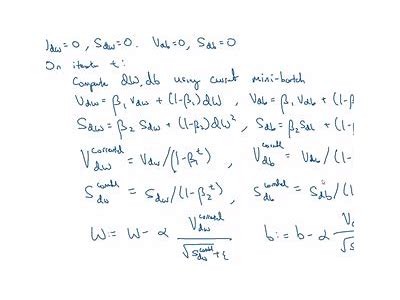 V_dw = 0, S_dw = 0. V_db = 0, S_db = 0
On iteration t:
Compute dW, db using current mini-batch
V_dw = β₁ V_dw + (1-β₁) dW , V_db = β₁ V_db + (1-β
S_dw = β₂ S_dw + (1-β₂) dW² , S_db = β₂ S_db + (1-β
V_dw^corrected = V_dw / (1-β₁^t) , V_db^corrected = V_db / (1-
S_dw^corrected = S_dw / (1-β₂^t) , S_db^corrected = S_db / (1
W := W - α V_dw^corrected / √S_dw^corrected + ε b := b - α V / √S